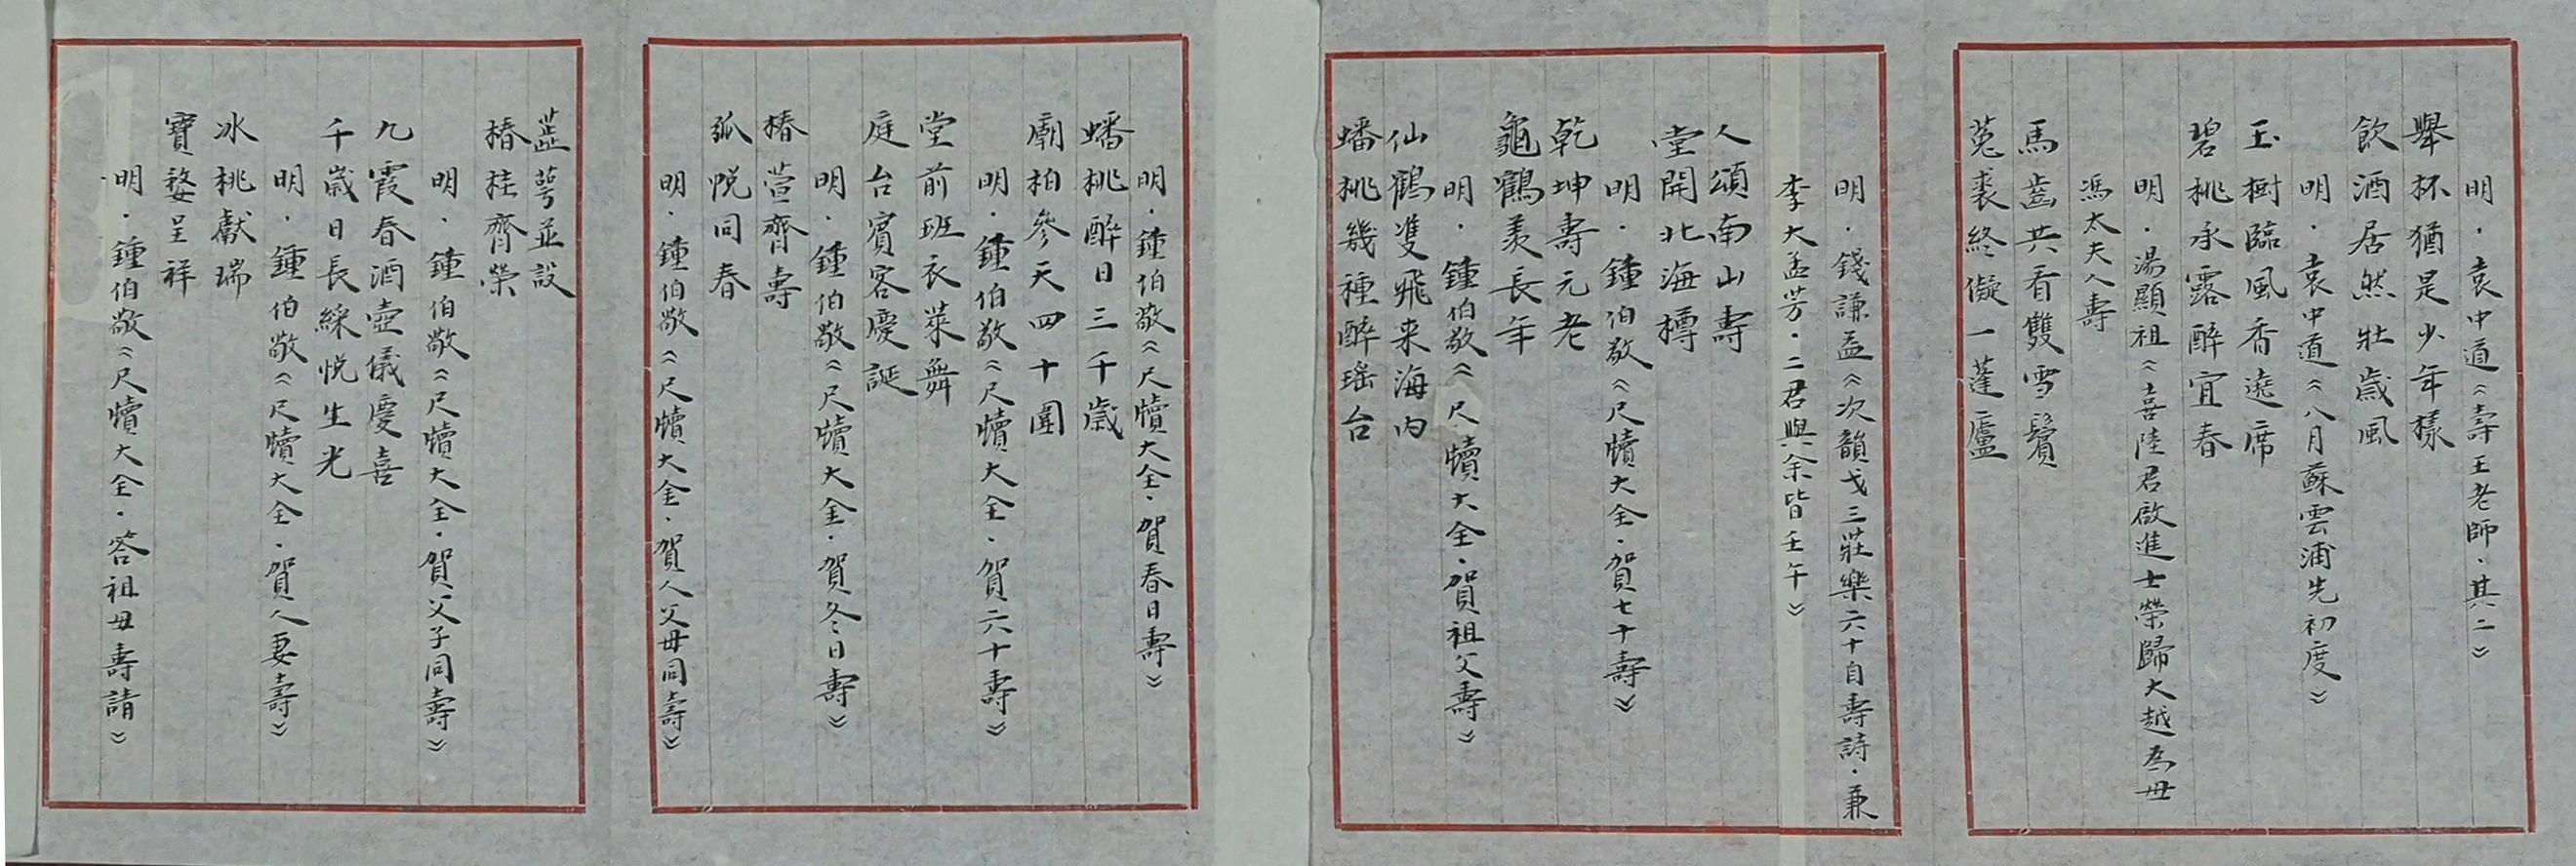 明．袁中道《壽王老師．其二》
舉杯猶是少年樣
飲酒居然壯歲風
明．袁中道《八月蘇雲浦先初度》
玉樹臨風香遶席
碧桃承露醉宜春
明．湯顯祖《喜陸君啟進士榮歸大越為母
馮太夫人壽
馬齒共看雙雪鬢
菟裘終儗一蓬廬
明．錢謙益《次韻戈三莊樂六十自壽詩．兼
李大孟芳．二君與余皆壬午》
人頌南山壽
堂開北海樽
明．鍾伯敬《尺牘大全．賀七十壽》
乾坤壽元老
龜鶴羨長年
明．鍾伯敬《尺牘大全．賀祖父壽》
仙鶴隻飛来海內
蟠桃幾種醉瑤台
明．鍾伯敬《尺牘大全．賀春日壽》
蟠桃醉日三千歲
廟柏參天四十圍
明．鍾伯敬《尺牘大全．賀六十壽》
堂前班衣萊舞
庭台賓客慶誕
明．鍾伯敬《尺牘大全．賀冬日壽》
椿萱齊壽
弧帨同春
明．鍾伯敬《尺牘大全．賀人父母同壽》
萼並設
椿桂齊榮
明．鍾伯敬《尺牘大全．賀父子同壽》
九霞春酒壺儀慶喜
千歲日長綵帨生光
明．鍾伯敬《尺牘大全．賀人妻壽》
冰桃獻瑞
寶婺呈祥
明．鍾伯敬《尺牘大全．答祖母壽請》